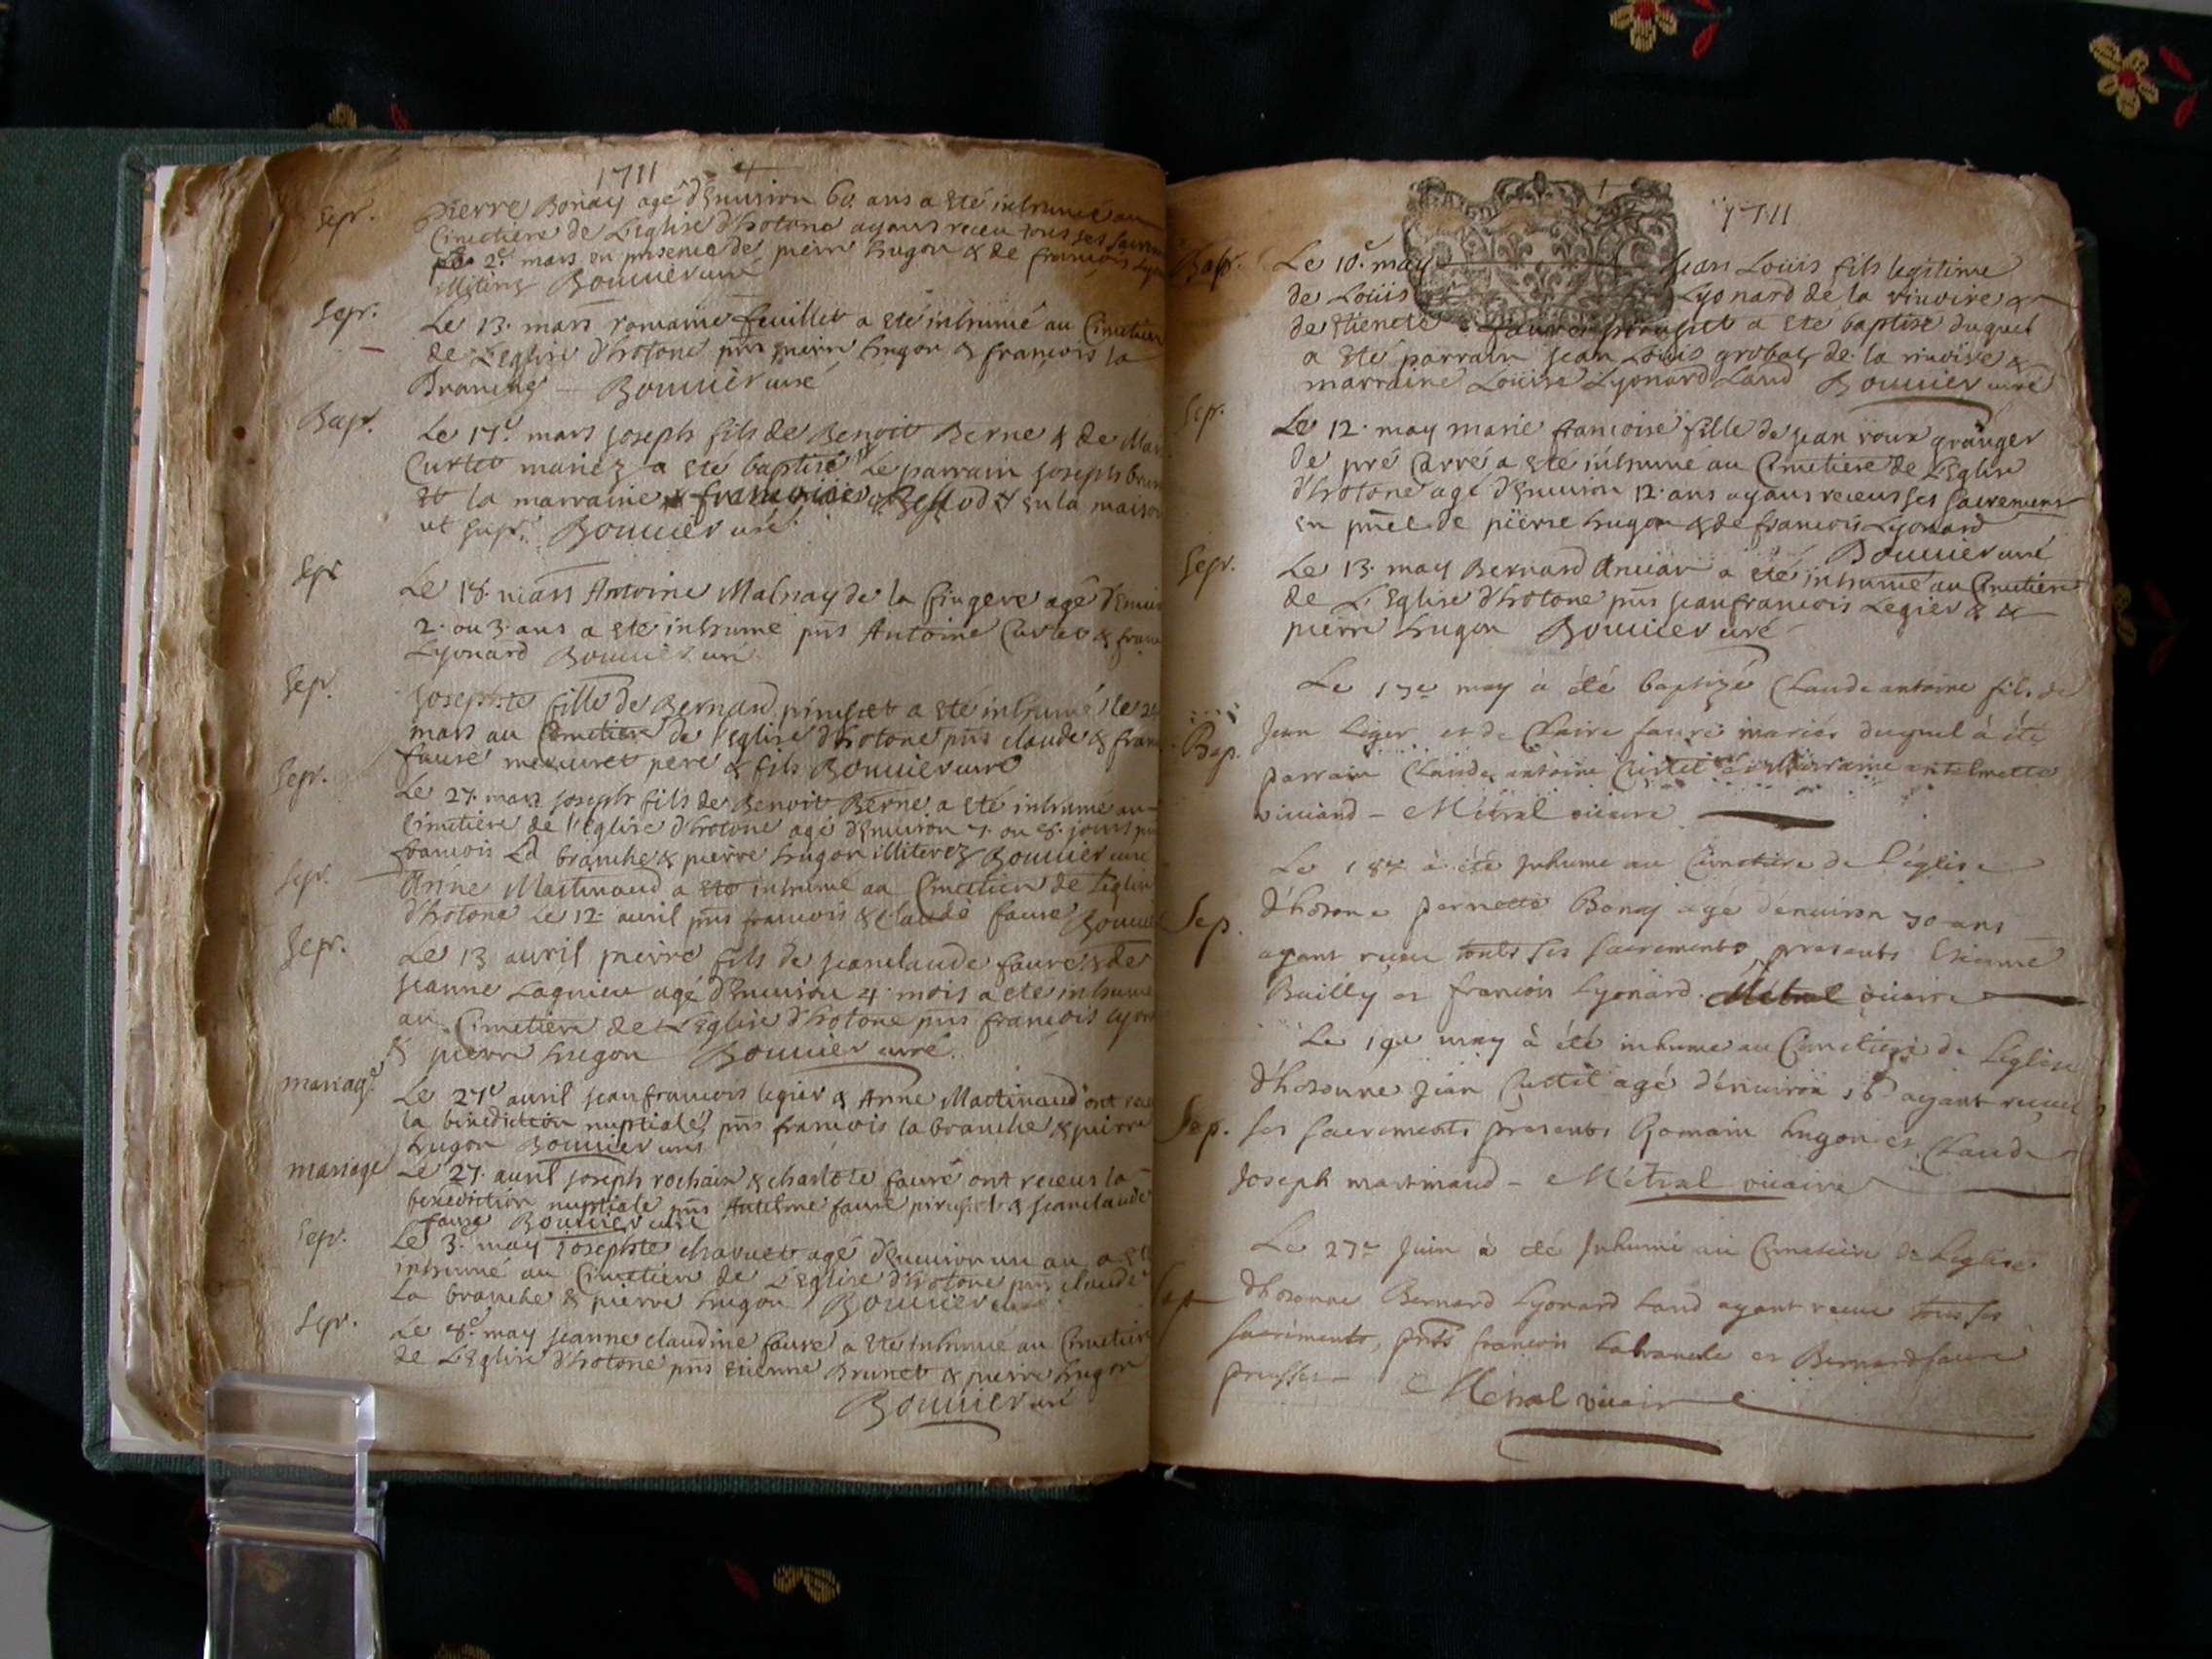 1711
Sepr. pierre Bonay agé d'Enuiron 60 ans a Eté inhumé au
Cimetiere de L'eglise d'hotone ayant receu tous ses
2e mars en presence de pierre hugon & de francois
illiterez Bouuier curé
Sepr. Le 13. mars romaine feuillet a eté inhumé au Cimetiere
de L'eglise d'hotone pnts pierre hugon & francois la
Branche Bouuier curé
Bapt. Le 17e mars joseph fils de Benoit Berne & de
Curtet mariez a eté baptisé Le parrain joseph
et la marraine francoise en la maison
ut supr. Bouuier curé
Sepr Le 18. mars Antoine Malnay de la agé d'Enuir
2. ou 3. ans a eté inhumé pnts Antoine Curtet & franc
Lyonard Bouuier curé
Sepr. josephte fille de Bernard a eté inhumé le
mars au Cimetiere de l'Eglise d'hotone pnts claude & franc
faure pere & fils Bouuier curé
Sepr. Le 27. mars joseph fils de Benoit Berne a eté inhumé au
Cimetiere de l'Eglise d'hotone agé d'Enuiron 7. ou 8. jours
francois La branche & pierre hugon illiterez Bouuier curé
Sepr. Anne Martinaud a eté inhumé au Cimetiere de L'eglise
d'hotone Le 12. auril pnts francois & claude faure Bouuie
Sepr. Le 13 auril pierre fils de jeanclaude faure & de
jeanne Lagnieu agé d'Enuiron 4. mois a eté inhumé
au Cimetiere de L'Eglise d'hotone pnts francois Lyon
& pierre hugon Bouuier curé.
mariage Le 27e auril jeanfrancois legier & Anne Martinaud ont
la benediction nuptiale pnts francois la branche & pierre
hugon Bouuier curé
mariage Le 27. auril joseph rochaix & charlote faure ont receus la
benediction nuptiale pnts Antelme faure & jeanclaude
faure Bouuier curé
Sepr. Le 3e may josephte charuet agé d'Enuiron un an a eté
inhumé au Cimetiere de L'Eglise d'hotone pnts claude
La branche & pierre hugon Bouuier curé
Sepr. Le 8e may jeanne claudine faure a eté inhumé au Cimetiere
de L'Eglise d'hotone pnts etienne Brunet & pierre hugon
Bouuier curé
1711
Bapt. Le 10e may jean Loüis fils legitime
de Loüis Lyonard de la riuoire &
de faure a eté baptisé duquel
a eté parrain jean Louis grobas de la riuoire &
marraine Loüise Lyonard Land Bouuier curé
Sepr. Le 12. may marie francoise fille de jean roux granger
de pré Carré a eté inhumé au Cimetiere de L'Eglise
d'hotone agé d'Enuiron 12. ans ayans receus ses sacremens
en pnce de pierre hugon & de francois Lyonard
Bouuier curé
Sepr. Le 13. may Bernard a eté inhumé au Cimetiere
de L'Eglise d'hotone pnts jeanfrancois Legier &
pierre hugon Bouuier curé
Le 17e may à été baptizé Claude antoine fils de
Bap. Jean Leger et de Claire faure mariés duquel à été
parrain Claude antoine Curtet et marraine antelmette
viuiand – Métral vicaire
Le 18e à été Inhumé au Cimetiere de l'église
Sep. d'hotonne pernette Bonay agé d'enuiron 70 ans
ayant reçeu touts ses sacrements, presents Etienne
Bailly et francois Lyonard. Métral vicaire
Le 19e may à été inhumé au Cimetiere de L'église
d'hotonne Jean Curtet agé d'énuiron ayant reçeu
Sep. ses sacrements presents Romain hugon et Claude
Joseph martinaud – Métral vicaire
Le 27e Juin à été Inhumé au Cimetiere de L'eglise
Sep d'hotonne Bernard Lyonard Land ayant receu tous ses
sacrements, pnts francois Labranche et Bernard faure
Métral vicaire